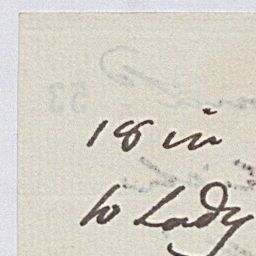 18 in
to Lady